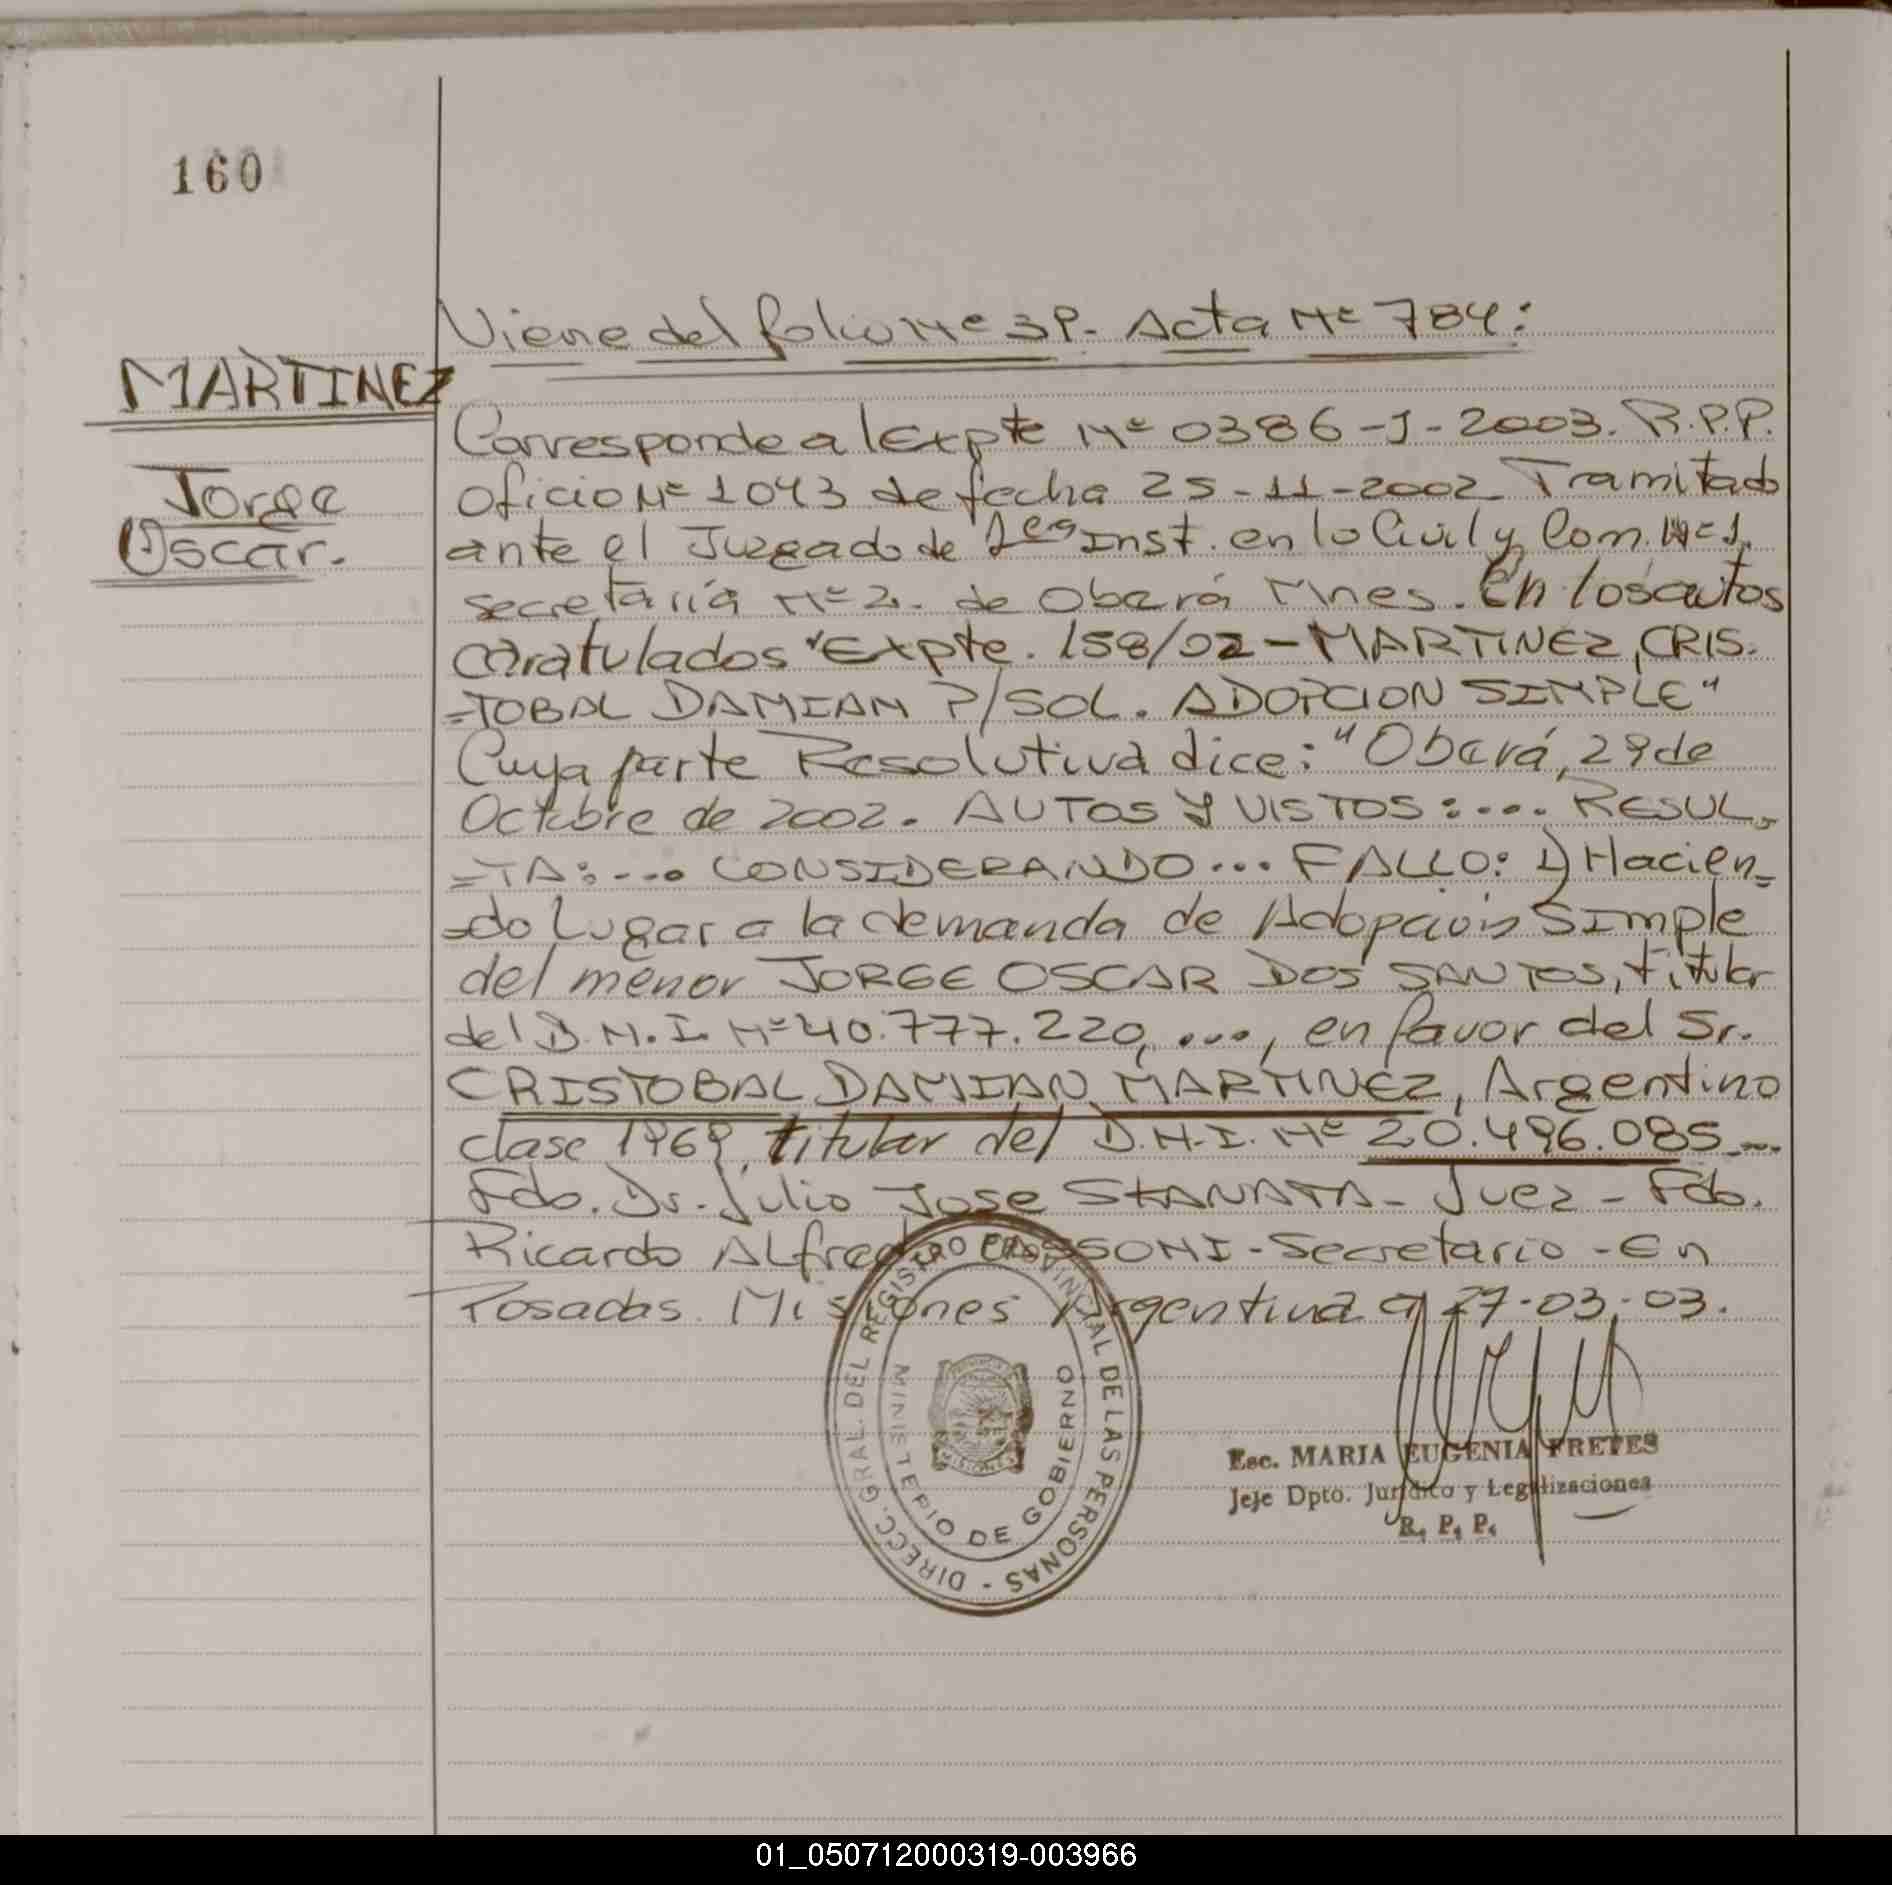 160
Viene del folio Nº 39. Acta Nº 784:
MARTINEZ
Jorge
Oscar.
Corresponde al Expte Nº 0386-J-2003. R.P.P.
Oficio Nº 1043 de fecha 25-11-2002 Tramitado
ante el Juzgado de 1era Inst. en lo Civil y Com. Nº 1,
secretaría Nº 2. de Oberá Mnes. En los autos
caratulados "Expte. 158/02-MARTINEZ, CRIS.
=TOBAL DAMIAN P/SOL. ADOPCION SIMPLE"
Cuya parte Resolutiva dice: "Oberá, 29 de
Octubre de 2002. AUTOS Y VISTOS:... RESUL=
=TA:... CONSIDERANDO... FALLO: 1) Hacien=
=do Lugar a la demanda de Adopción Simple
del menor JORGE OSCAR DOS SANTOS, titular
del D.N.I. Nº 40.777.220, ..., en favor del Sr.
CRISTOBAL DAMIAN MARTINEZ, Argentino
clase 1969, titular del D.N.I. Nº 20.496.085...
Fdo. Dr. Julio Jose - Juez - Fdo.
Ricardo ALfredo - Secretario - En
Posadas. Misiones Argentina a 27-03-03.
DIRECC. GRAL. DEL REGISTRO PROVINCIAL DE LAS PERSONAS -
MINISTERIO DE GOBIERNO
MISIONES
Esc. MARIA EUGENIA FRETES
Jefe Dpto. Jurídico y Legalizaciones
R. P. P.
01_050712000319-003966